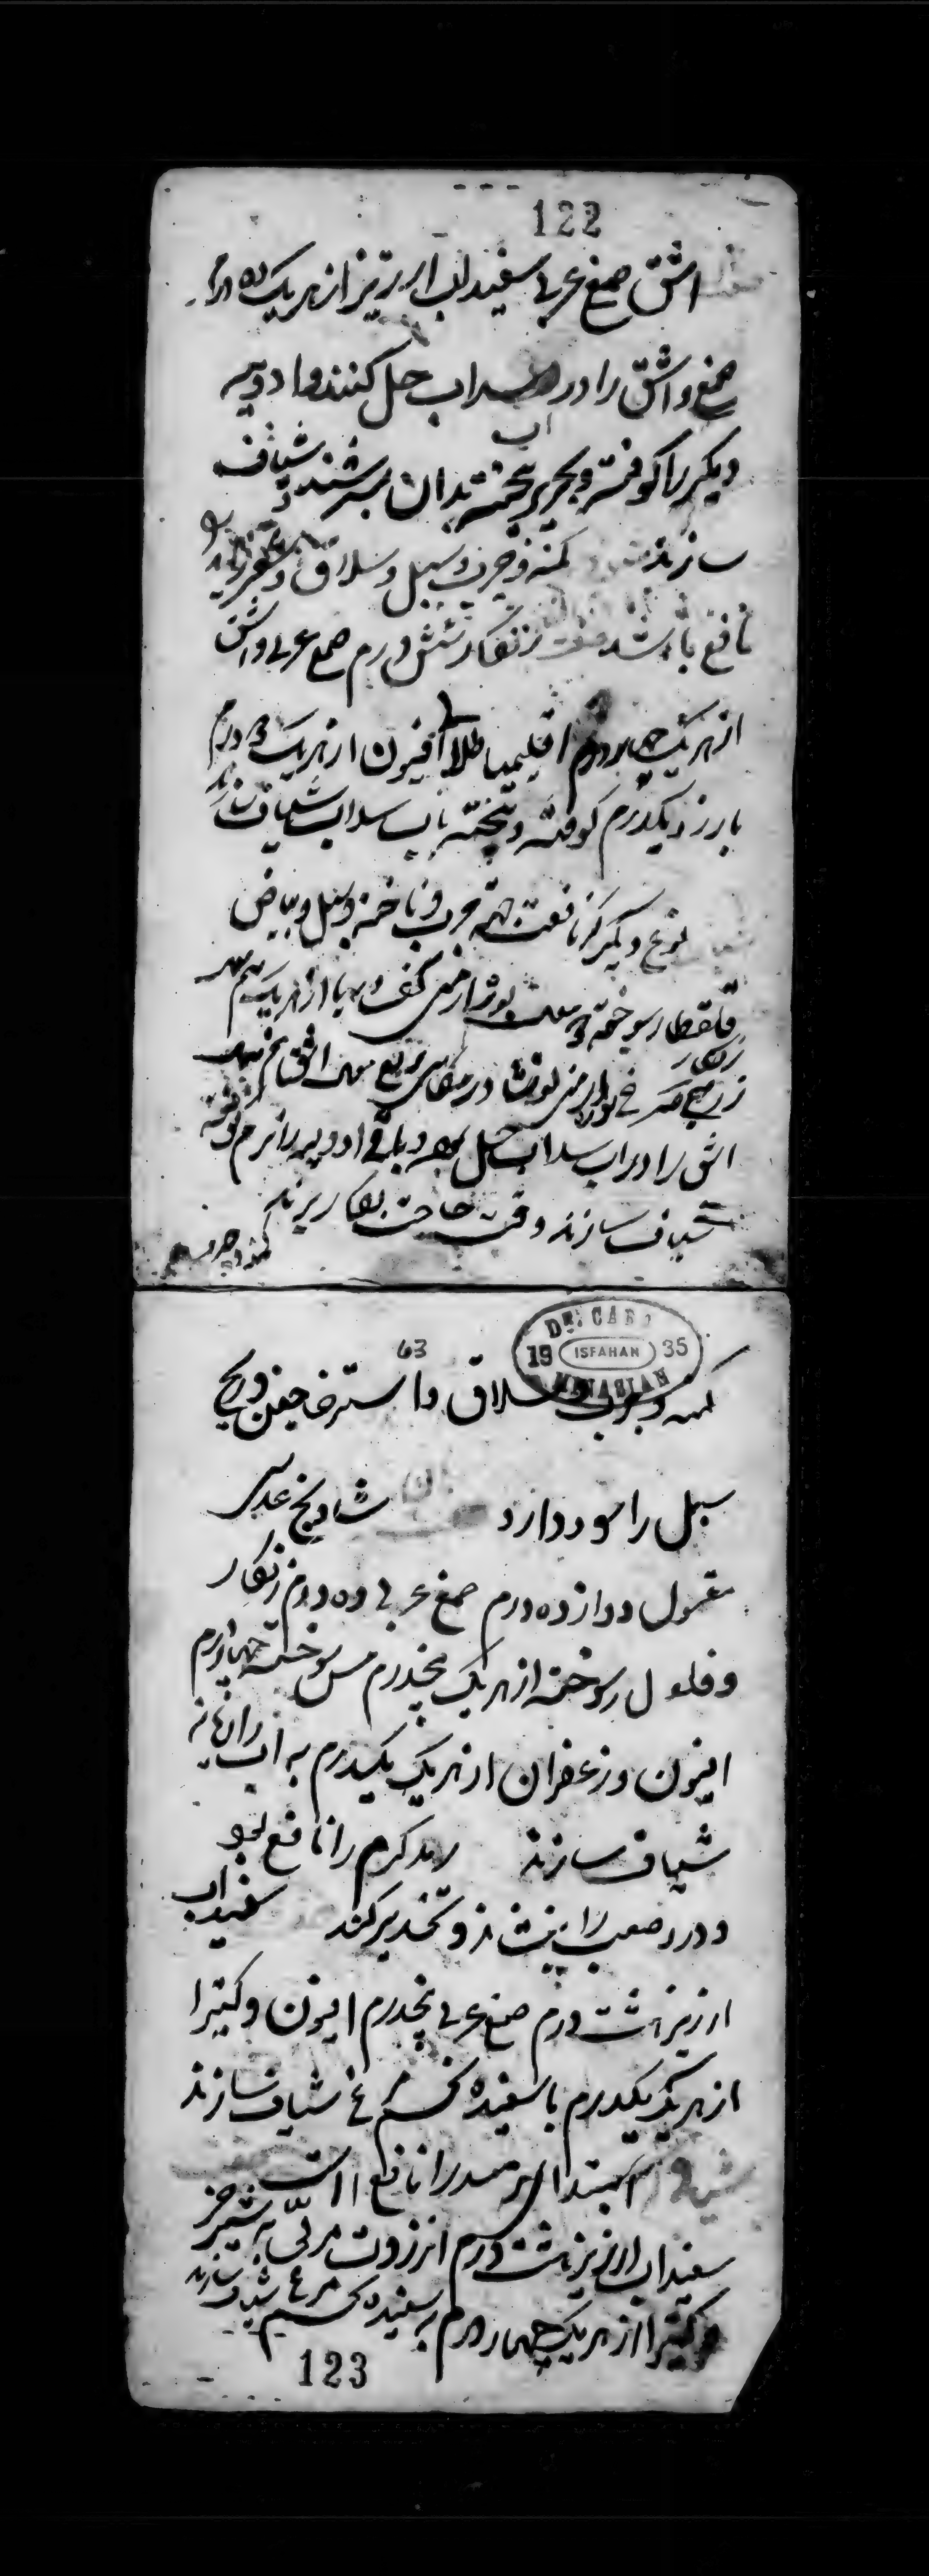 122
اشق صمغ عربی سفیداب ارزیز از هریک ده درم
صمغ و اشق را در سداب حل کنند و ادویه
اب
دیگر را کوفته و بحریر بیخته بدان بسرشند و شیاف
سازند کمنه و جرب و سبل و سلاق و
نافع باشد زنگار شش درم صمغ عربی و اشق
از هریک چهار درم اقلیمیا طلا افیون از هریک درم
بارزد یکدرم کوفته و بیخته باب سداب شیاف سازند
نوع دیگر که نافعست جهة جرب و ناخنه و سبل و بیاض
قلقطار سوخته بوره ارمنی کف دریا از هریک
زنگار
زرنیخ سرخ نوشادر اشق
اشق را در اب سداب حل و باقی ادویه را نرم کوفته
شیاف سازند وقت حاجت بکار برند
کمنه و جرب
63
DR. CARO
19 ISFAHAN 35
MINASIAN
کمنه و جرب و سلاق و استرخا جفن و ریح
سبل را سود دارد شادنج عدسی
مغسول دوازده درم صمغ عربی ده درم زنگار
و سوخته از هریک پنجدرم مس سوخته چهار درم
افیون و زعفران از هریک یکدرم به اب رازیانه
شیاف سازند رمد گرم را نافع بود
و درد صعب را بنشاند و تخدیر کند سفیداب
ارزیز هشت درم صمغ عربی پنجدرم افیون و کتیرا
از هریک یکدرم با سفیده تخم مرغ شیاف سازند
شیاف ابتدا رمد را نافع است
سفیداب ارزیز هشت درم انزروت مربی به شیر خر
و کتیرا از هریک چهار درم به سفیده تخم مرغ شیاف سازند
123